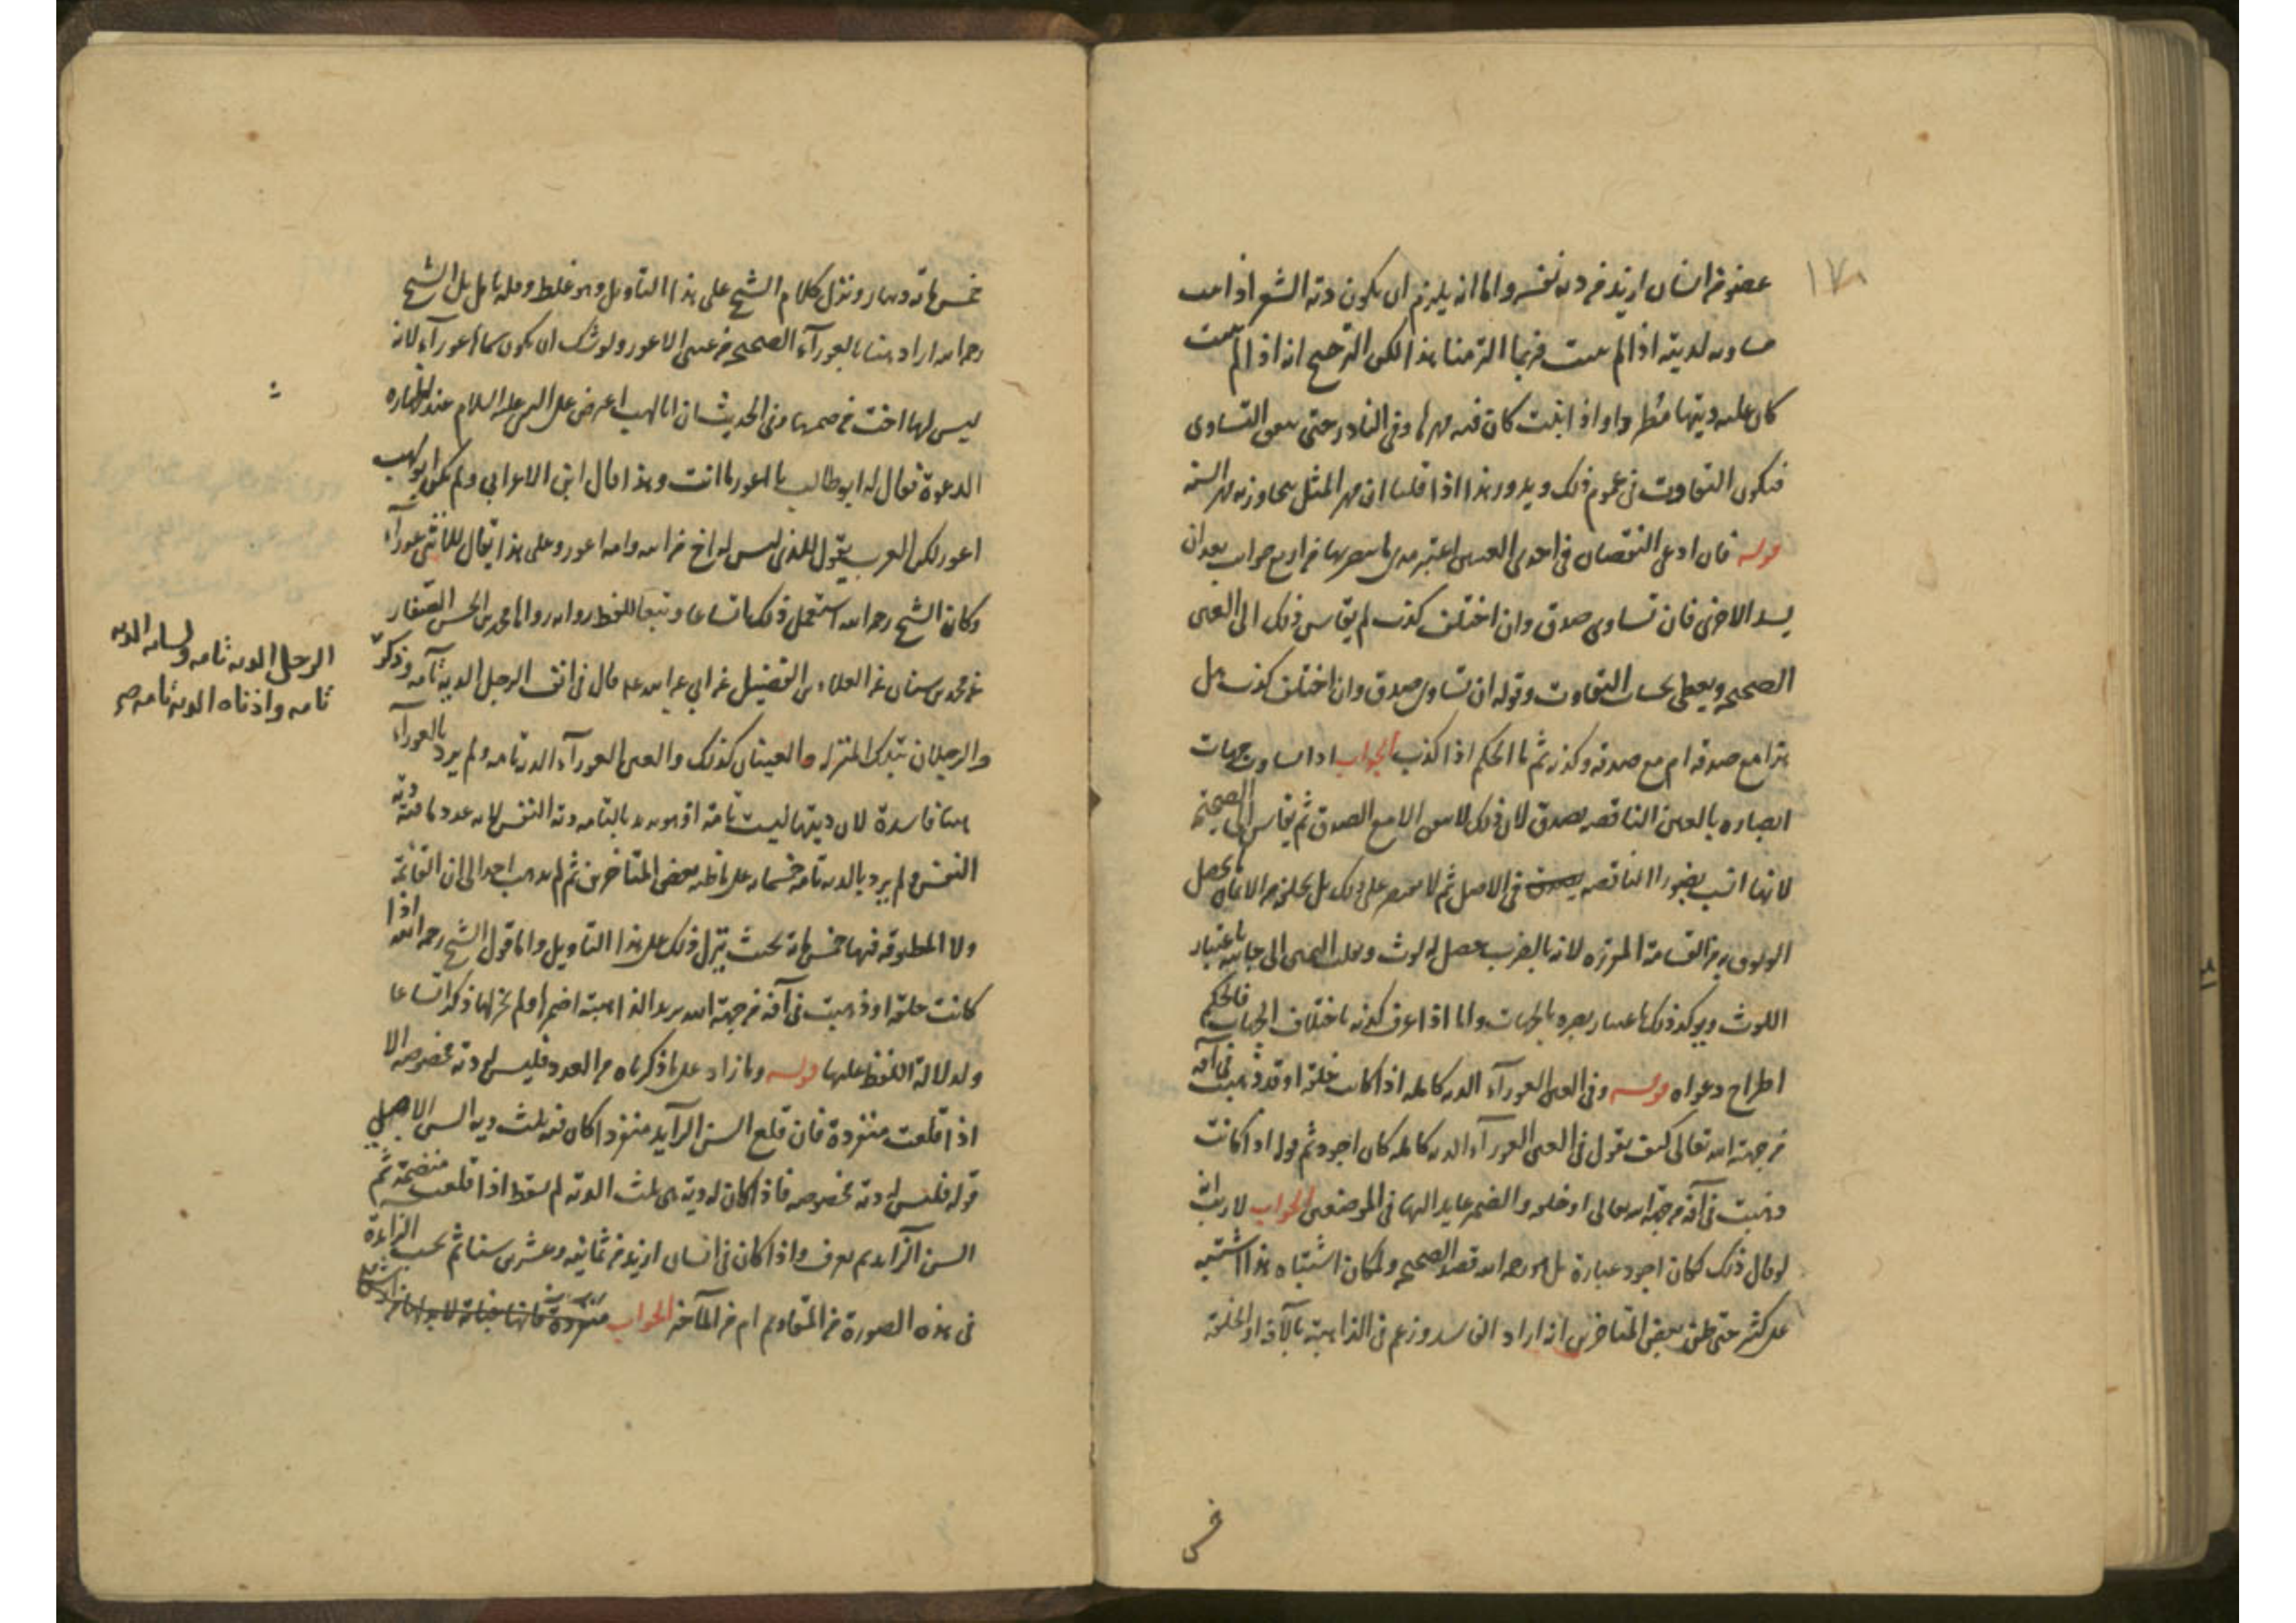 ١٧٨
عضو من انسان ازيد من دية نفسه واما انه يلزم ان يكون دية الشعر اذا نبت
مساويه لديته اذا لم ينبت فربما التزمنا هذا لكن الترجيح انه اذا لم ينبت
كان عليه ديتها مطردا واذا نبت كان فيه مهرها وفي النادر حتى يتفق التساوى
فيكون التفاوت في عموم ذلك ويدور هذا اذا قلنا ان مهر المثل يتجاوز به مهر السنة
قوله فان ادعى النقصان في احدى العينين اعتبر مدى ما يبصر بها من اربع جوانب بعد ان
يسد الاخرى فان تساوى صدق وان اختلف كذب ثم يقاس ذلك الى العين
الصحيحه ويعطى بحساب التفاوت وقوله ان تساوى صدق وان اختلف كذب هل
هذا مع صدقه ام مع صدقه وكذبه ثم ما الحكم اذا كذب الجواب اذا تساوت جهات
ابصاره بالعين الناقصه يصدق لان ذلك لا يتفق الا مع الصدق ثم يقاس الى الصحيحة
لانها انسب بضور الناقصه في الاصل ثم لا يقتصر على ذلك بل يحلفه من الايمان ما يحصل
الوثوق به من القسامة المقررة لانه بالضرب حصل له لوث وينقلب اليمين الى جانبه باعتبار
اللوث ويؤكد ذلك باعتبار بصره بالجهات واما اذا عرف كذبه باختلاف الجهات فالحكم
اطراح دعواه قوله وفي العين العوراء الدية كاملة اذا كانت خلقة او قد ذهبت في آفة
من جهة الله تعالى كيف يقول في العين العوراء الدية كاملة كان اجود ثم قوله اذا كانت
ذهبت في آفة من جهة الله تعالى او خلقة والضمير عايد اليها في الموضعين الجواب لا ريب انه
لو قال ذلك لكان اجود عبارة بل هو رحمه الله قصد الصحيحه ولمكان اشتباه هذا اشتبه
على كثير حتى ظن بعض المتاخرين انه اراد الفاسد وزعم في الذاهبة بالآفة او الخلقة
خمس
خمس مائة دينار ونزل كلام الشيخ على هذا التاويل وهو غلط وقلة تامل بل الشيخ
رحمه الله اراد هنا بالعوراء الصحيحه من عيني الاعور ولو شك ان يكون سماها عوراء لانه
ليس لها اخت من جسمها وفي الحديث ان ابا لهب اعترض على النبي عليه السلام عند اظهاره
الدعوة فقال له ابو طالب يا اعور ما انت وهذا قال ابن الاعرابي ولم يكن ابو لهب
اعور لكن العرب يقول للذى ليس له اخ من ابيه وامه اعور وعلى هذا يقال للانثى عوراء
وكان الشيخ رحمه الله استعمل ذلك اتساعا وتبعا للفظ رواية رواها محمد بن الحسن الصفار
عن محمد بن سنان عن العلاء بن الفضيل عن ابي عبد الله ع قال في انف الرجل الدية تامة وذكر
والرجلان بتلك المنزلة والعينان كذلك والعين العوراء الدية تامة ولم يرد بالعوراء
هنا فاسدة لان ديتها ليست تامة اذ هو يريد بالتامة دية النفس لانه عدد ما فيه دية
النفس ولم يرد بالدية تامة خمسمائة على ما ظنه بعض المتاخرين ثم لم يذهب احد الى ان القائمة
ولا المطبوقة فيها خمس مائة بحيث ينزل ذلك على هذا التاويل واما قول الشيخ رحمه الله اذا
كانت خلقة او ذهبت في آفة من جهة الله يريد الذاهبة اضمرها ولم يجر لها ذكر اتساعا
ولدلالة اللفظ عليها قوله وما زاد على ما ذكرناه من العدد فليس له دية مخصوصة الا
اذا قلعت منفردة فان قلع السن الزايد منفردا كان فيه ثلث دية السن الاصلي
قوله فليس له دية مخصوصة فاذا كان له دية هي ثلث الدية لم يسقط اذا قلعت منضمة ثم
السن الزايد بم يعرف واذا كان في انسان ازيد من ثمانية وعشرين سنا ثم يحسب الزايدة
في هذه الصورة من المقاديم ام من المآخير الجواب
الرجل الدية تامه ولسانه الدية
تامه واذناه الدية تامه صح